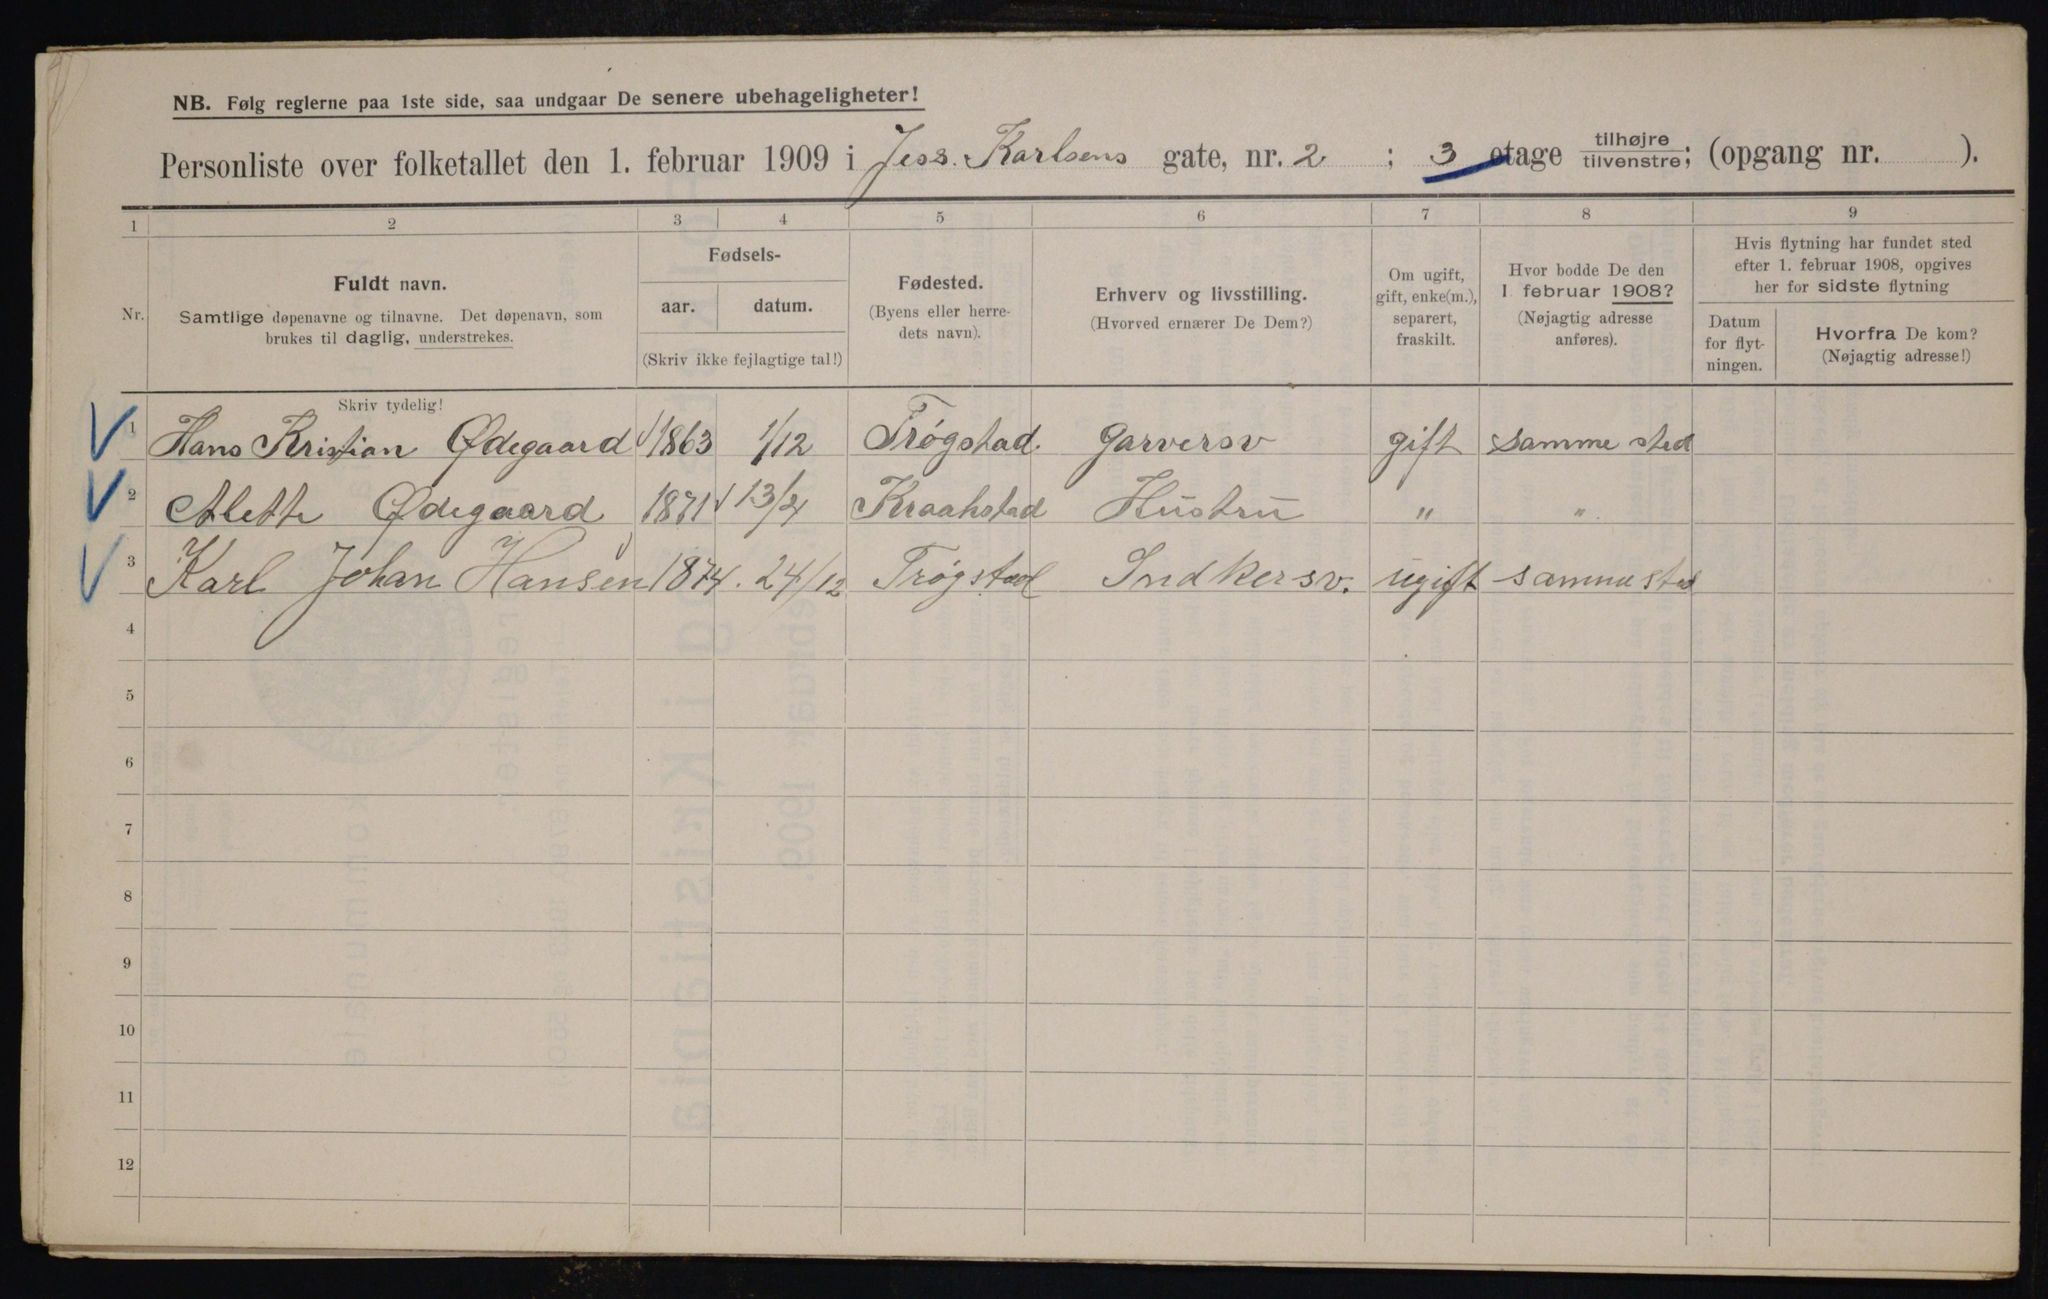 NB. Følg reglerne paa 1ste side, saa undgaar De senere ubehageligheter!
Personliste over folketallet den 1. februar 1909 i Jess. Karlsens gate, nr. 2 ; 3 etage tilhøjre/tilvenstre; (opgang nr. ).
1 2 3 4 5 6 7 8 9
Nr.
Fuldt navn.
Samtlige døpenavne og tilnavne. Det døpenavn, som
brukes til daglig, understrekes.
Fødsels-
aar. datum.
(Skriv ikke fejlagtige tal!)
Fødested.
(Byens eller herre-
dets navn).
Erhverv og livsstilling.
(Hvorved ernærer De Dem?)
Om ugift,
gift, enke(m.),
separert,
fraskilt.
Hvor bodde De den
1 februar 1908?
(Nøjagtig adresse
anføres).
Hvis flytning har fundet sted
efter 1. februar 1908, opgives
her for sidste flytning
Datum
for flyt-
ningen.
Hvorfra De kom?
(Nøjagtig adresse!)
Skriv tydelig!
1 Hans Kristian Ødegaard 1863 1/12 Trøgstad Garversv gift samme sted
2 Alette Ødegaard 1871 13/2 Kraahstad Hustru " "
3 Karl Johan Hansen 1874. 24/12 Trøgstad Indkersv. ugift samme sted
4
5
6
7
8
9
10
11
12